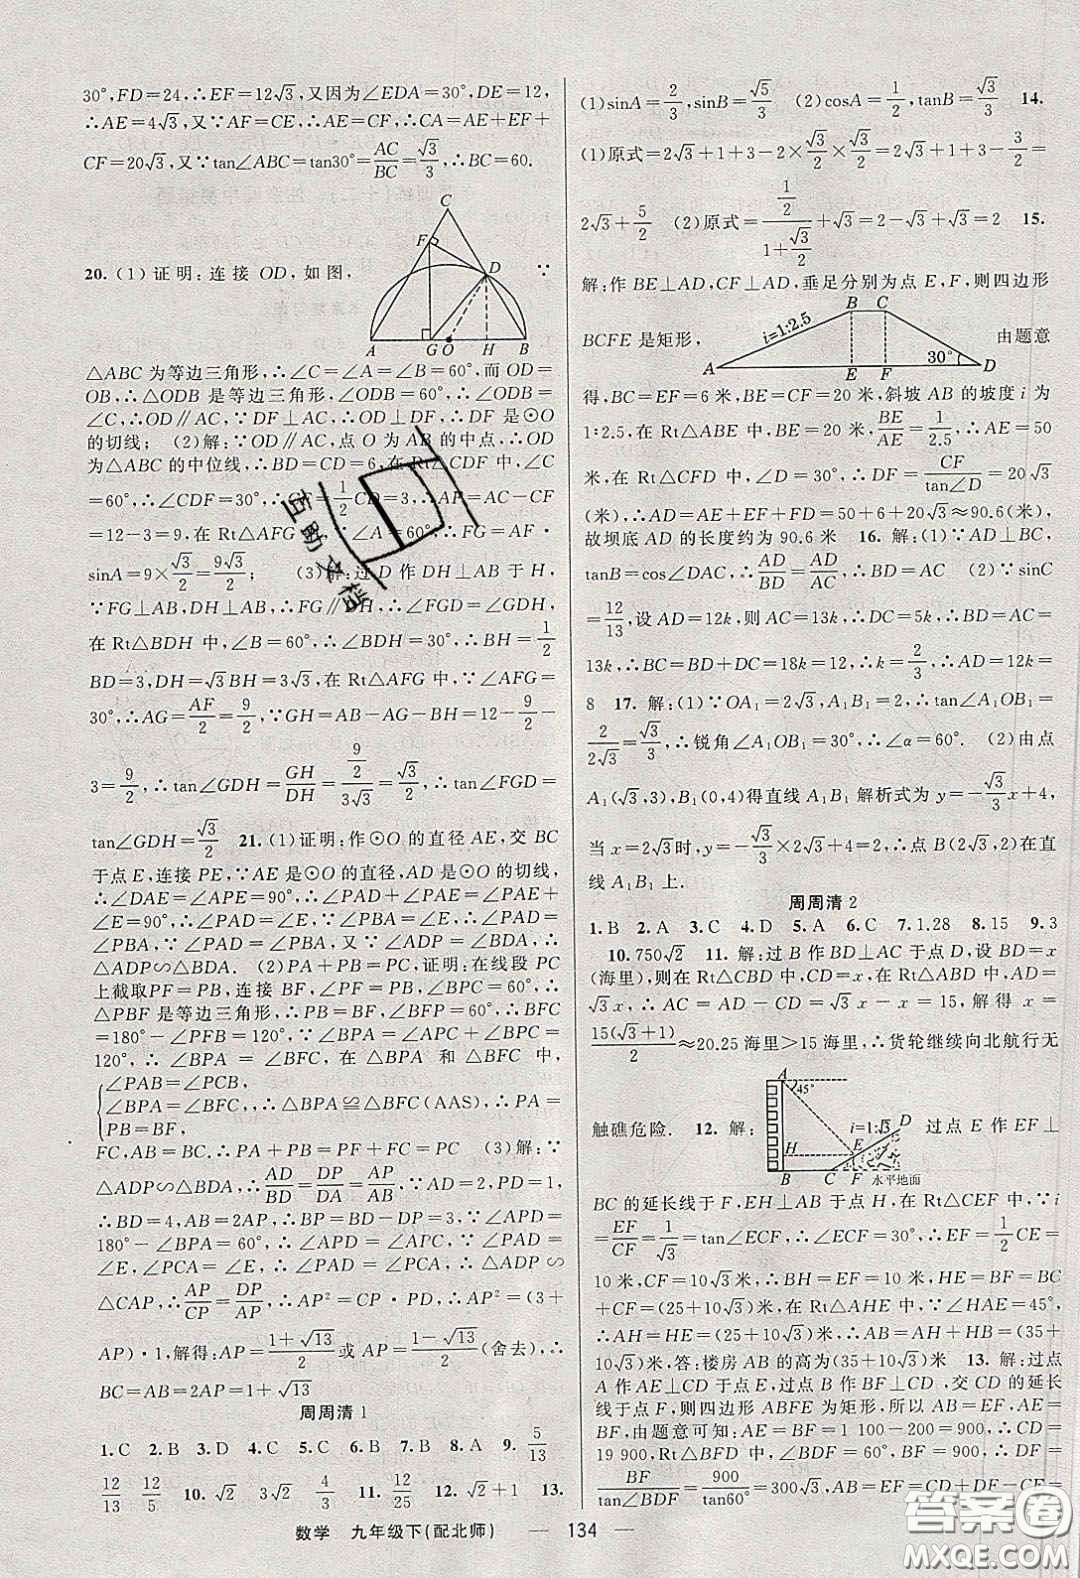 30°,FD=24,∴EF=12√3,又因为∠EDA=30°,DE=12,
∴AE=4√3,又∵AF=CE,∴AE=CF,∴CA=AE+EF+
CF=20√3,又∵tan∠ABC=tan30°=AC/BC=√3/3,∴BC=60.
20.(1)证明:连接OD,如图, ∵
C
F
D
A G O H B
△ABC为等边三角形,∴∠C=∠A=∠B=60°,而OD=
OB,∴△ODB是等边三角形,∠ODB=60°,∴∠ODB=
∠C,∴OD∥AC,∵DF⊥AC,∴OD⊥DF,∴DF是⊙O
的切线; (2)解:∵OD∥AC,点O为AB的中点,∴OD
为△ABC的中位线,∴BD=CD=6,在Rt△CDF中,∠C
=60°,∴∠CDF=30°,∴CF=1/2CD=3,∴AF=AC-CF
=12-3=9,在Rt△AFG中,∵∠A=60°,∴FG=AF·
sinA=9×√3/2=9√3/2; (3)解:过D作DH⊥AB于H,
∵FG⊥AB,DH⊥AB,∴FG∥DH,∴∠FGD=∠GDH,
在Rt△BDH中,∠B=60°,∴∠BDH=30°,∴BH=1/2
BD=3,DH=√3BH=3√3,在Rt△AFG中,∵∠AFG=
30°,∴AG=AF/2=9/2,∵GH=AB-AG-BH=12-9/2-
3=9/2,∴tan∠GDH=GH/DH=(9/2)/(3√3)=√3/2,∴tan∠FGD=
tan∠GDH=√3/2 21.(1)证明:作⊙O的直径AE,交BC
于点E,连接PE,∵AE是⊙O的直径,AD是⊙O的切线,
∴∠DAE=∠APE=90°,∴∠PAD+∠PAE=∠PAE+
∠E=90°,∴∠PAD=∠E,∵∠PBA=∠E,∴∠PAD=
∠PBA,∵∠PAD=∠PBA,又∵∠ADP=∠BDA,∴
△ADP∽△BDA. (2)PA+PB=PC,证明:在线段PC
上截取PF=PB,连接BF,∵PF=PB,∠BPC=60°,∴
△PBF是等边三角形,∴PB=BF,∠BFP=60°,∴∠BFC
=180°-∠PFB=120°,∵∠BPA=∠APC+∠BPC=
120°,∴∠BPA=∠BFC,在△BPA和△BFC中,
∠PAB=∠PCB,
∠BPA=∠BFC,∴△BPA≌△BFC(AAS),∴PA=
PB=BF,
FC,AB=BC,∴PA+PB=PF+FC=PC (3)解:∵
△ADP∽△BDA,∴AD/BD=DP/DA=AP/AB,∵AD=2,PD=1,
∴BD=4,AB=2AP,∴BP=BD-DP=3,∵∠APD=
180°-∠BPA=60°,∴∠APD=∠APC,∵∠PAD=
∠E,∠PCA=∠E,∴∠PAD=∠PCA,∴△ADP∽
△CAP,∴AP/CP=DP/AP,∴AP²=CP·PD,∴AP²=(3+
AP)·1,解得:AP=(1+√13)/2或AP=(1-√13)/2(舍去),∴
BC=AB=2AP=1+√13
周周清1
1.C 2.B 3.D 4.C 5.C 6.B 7.B 8.A 9.5/13
12/13 12/5 10.√2 3√2 4/3 11.12/25 12.√2+1 13.
(1)sinA=2/3,sinB=√5/3 (2)cosA=1/2,tanB=√3/3 14.
(1)原式=2√3+1+3-2×√3/2×√3/2=2√3+1+3-3/2=
2√3+5/2 (2)原式=(1/2)/(1+√3/2)+√3=2-√3+√3=2 15.
解:作BE⊥AD,CF⊥AD,垂足分别为点E,F,则四边形
BCFE是矩形, 由题意
B C
i=1:2.5
30°
A E F D
得,BC=EF=6米,BE=CF=20米,斜坡AB的坡度i为
1:2.5,在Rt△ABE中,∵BE=20米,BE/AE=1/2.5,∴AE=50
米.在Rt△CFD中,∠D=30°,∴DF=CF/tan∠D=20√3
(米),∴AD=AE+EF+FD=50+6+20√3≈90.6(米),
故坝底AD的长度约为90.6米 16.解:(1)∵AD⊥BC,
tanB=cos∠DAC,∴AD/BD=AD/AC,∴BD=AC (2)∵sinC
=12/13,设AD=12k,则AC=13k,∴DC=5k,∴BD=AC=
13k,∴BC=BD+DC=18k=12,∴k=2/3,∴AD=12k=
8 17.解:(1)∵OA₁=2√3,A₁B₁=2,∴tan∠A₁OB₁=
2/2√3=√3/3,∴锐角∠A₁OB₁=30°,∴∠α=60°. (2)由点
A₁(√3,3),B₁(0,4)得直线A₁B₁解析式为y=-√3/3x+4,
当x=2√3时,y=-√3/3×2√3+4=2,∴点B(2√3,2)在直
线A₁B₁上.
周周清2
1.B 2.A 3.C 4.D 5.A 6.C 7.1.28 8.15 9.3
10.750√2 11.解:过B作BD⊥AC于点D,设BD=x
(海里),则在Rt△CBD中,CD=x,在Rt△ABD中,AD=
√3x,∴AC=AD-CD=√3x-x=15,解得x=
15(√3+1)/2≈20.25海里>15海里,∴货轮继续向北航行无
触礁危险. 12.解: 过点E作EF⊥
A
45°
i=1:√3 D
H E
B C F 水平地面
BC的延长线于F,EH⊥AB于点H,在Rt△CEF中,∵i
=EF/CF=1/√3=tan∠ECF,∴∠ECF=30°,∴EF=1/2CE
=10米,CF=10√3米,∴BH=EF=10米,HE=BF=BC
+CF=(25+10√3)米,在Rt△AHE中,∵∠HAE=45°,
∴AH=HE=(25+10√3)米,∴AB=AH+HB=(35+
10√3)米,答:楼房AB的高为(35+10√3)米 13.解:过点
A作AE⊥CD于点E,过点B作BF⊥CD,交CD的延长
线于点F,则四边形ABFE为矩形,所以AB=EF,AE=
BF,由题意可知:AE=BF=1 100-200=900,∴CD=
19 900,Rt△BDF中,∠BDF=60°,BF=900,∴DF=
BF/tan60°=900/tan60°=300√3,∴AB=EF=CD+DF-CE=
数学 九年级下(配北师) — 134 —
互助文档
答案圈
MXQE.COM